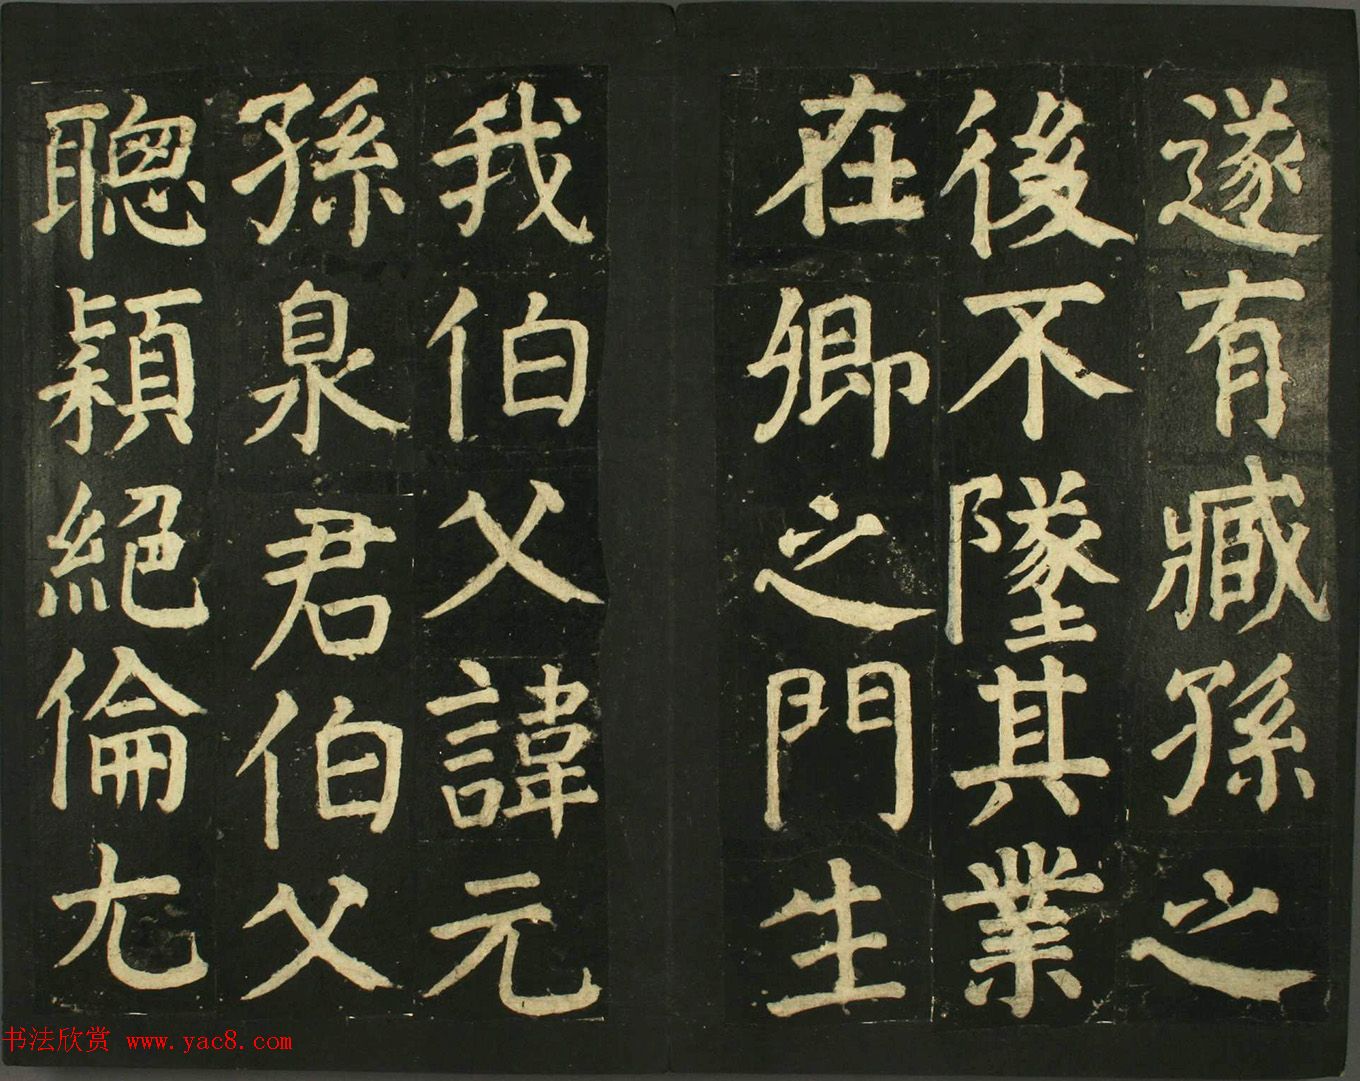 遂有臧孫之
後不墜其業
在卿之門生
我伯父諱元
孫泉君伯父
聰穎絕倫尤
书法欣赏 www.yac8.com